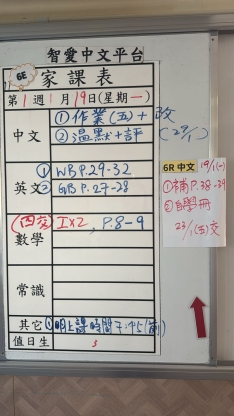 智愛中文平台
6E 家課表
第1週1月19日(星期一)
中文 ①作業(五)+政
②溫默+評(23/1)
英文 ①WB P.29-32
②GB P.27-28
數學 I×2, P.8-9
常識
其它 ①明上課時間7:45(前)
值日生 3
6R 中文 19/1(一)
①補P.38-39
②自學冊
23/1(五)交